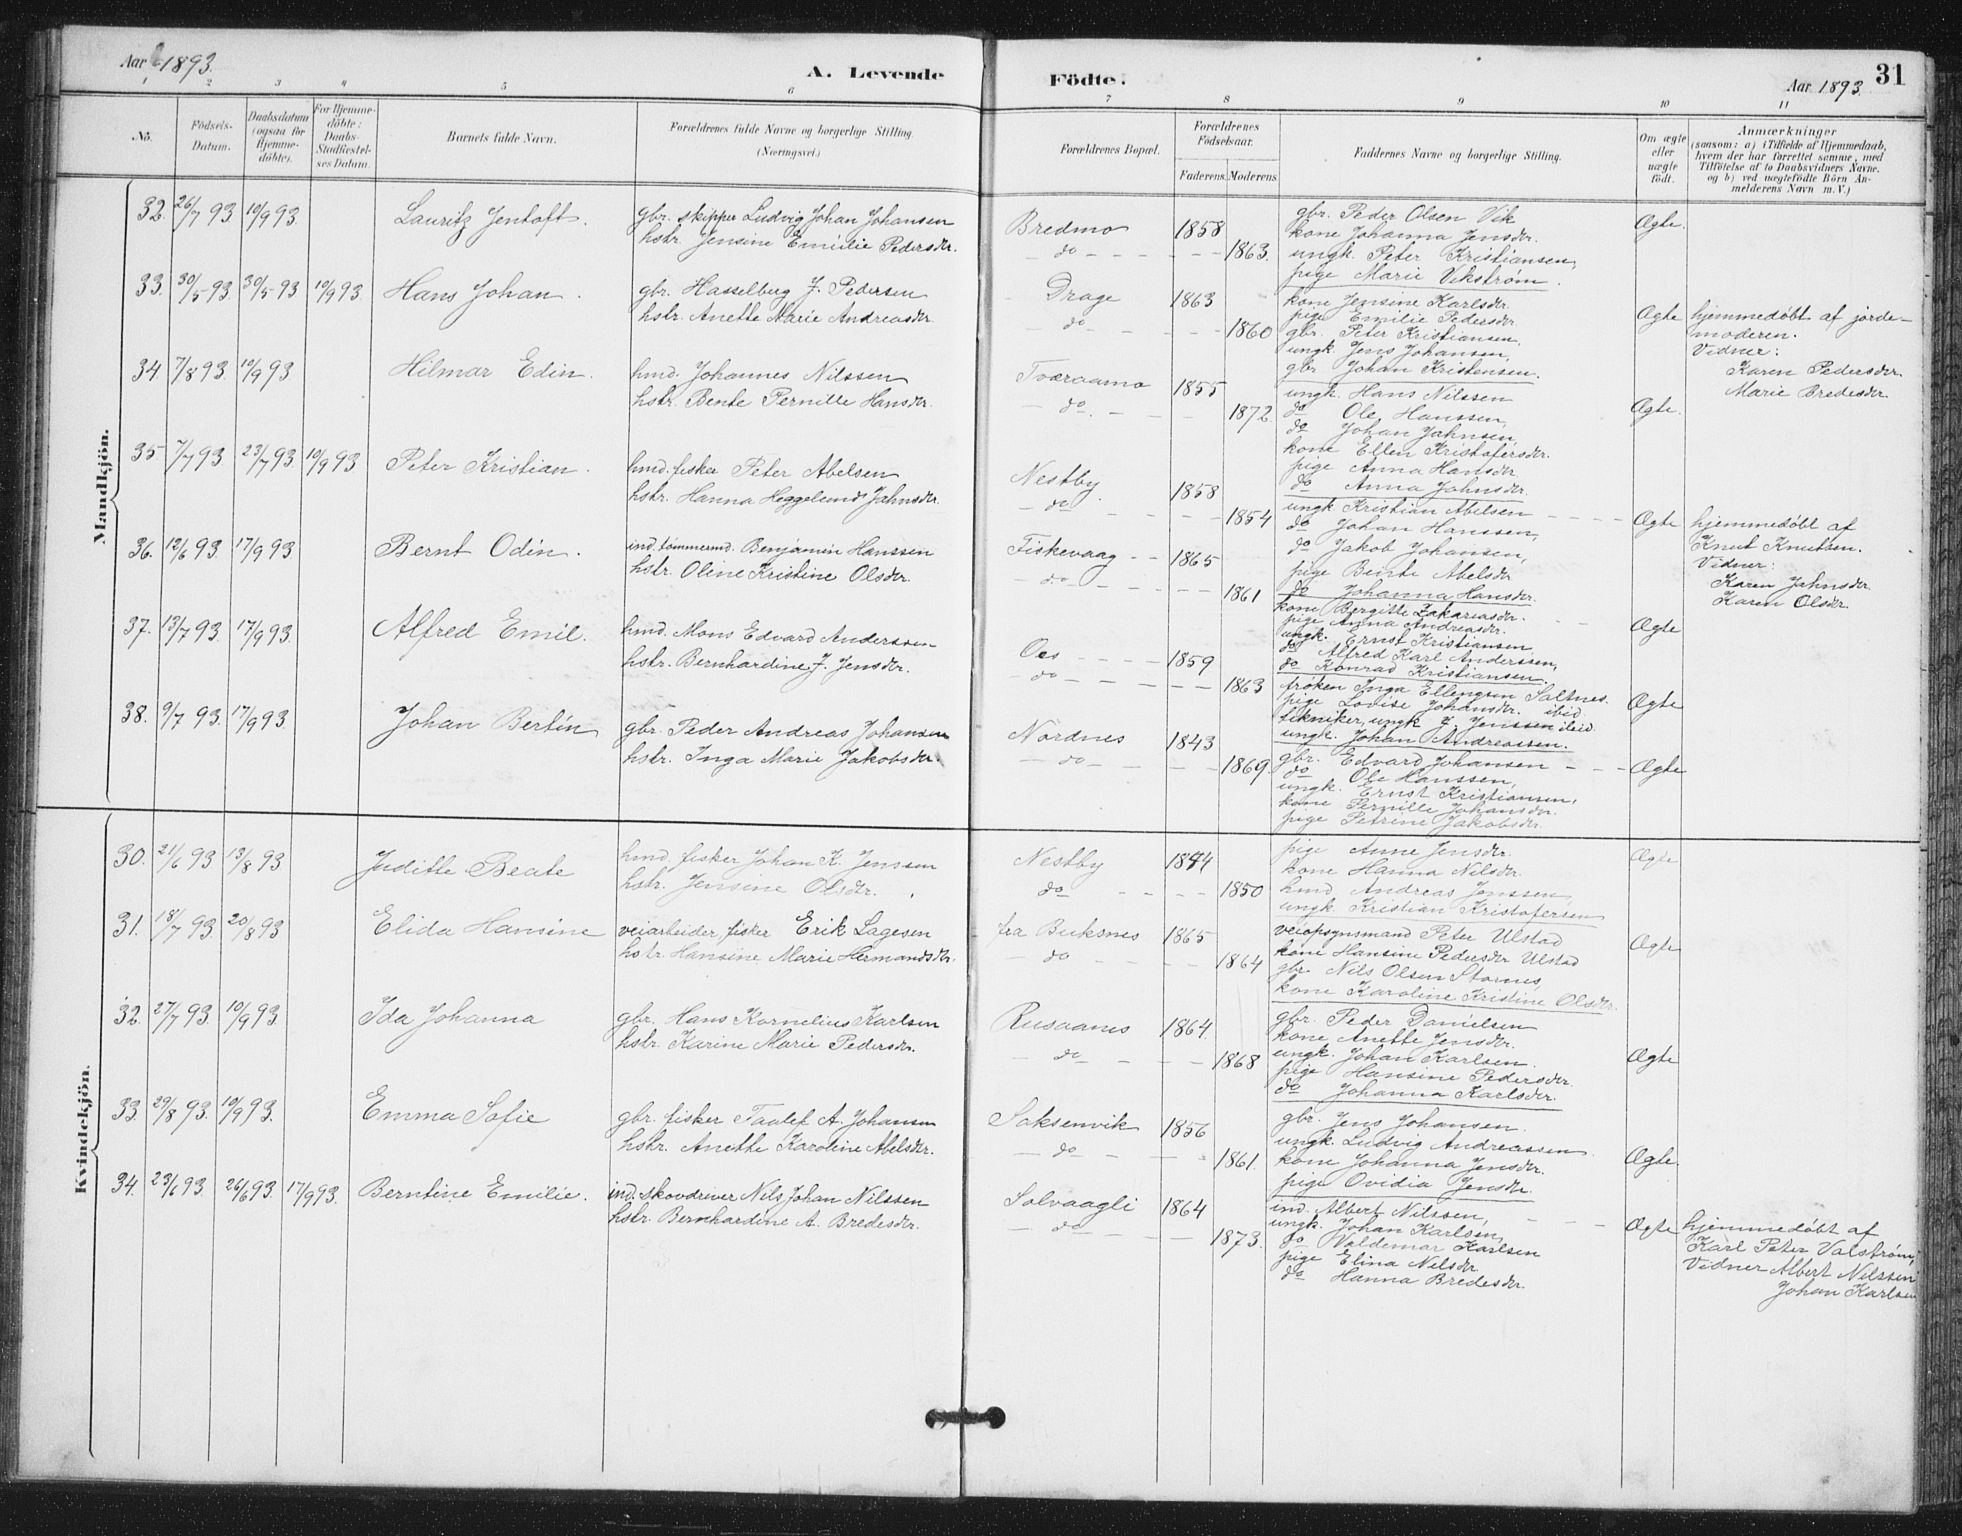 Aar 1893.
A. Levende Födte.
Aar 1893
31
1 2 3 4 5 6 7 8 9 10 11
No. Födsels-Datum. Daabsdatum (ogsaa for Hjemme-döbte). For Hjemme-döbte: Daabs-Stadfæstel-ses Datum. Barnets fulde Navn. Forældrenes fulde Navne og borgerlige Stilling. (Næringsvei.) Forældrenes Bopæl. Forældrenes Födselsaar. Faderens. Moderens. Faddernes Navne og borgerlige Stilling. Om ægte eller uægte födt. Anmærkninger (saasom: a) i Tilfælde af Hjemmedaab, hvem der har forrettet samme, med Tilföielse af to Daabsvidners Navne, og b) ved uægtefödte Börn An-melderens Navn m. V.)
Mandkjön.
32. 26/7 93 10/9 93. Lauritz Jentoft. gbr. skipper Ludvig Johan Johansen Bredmo 1858 gbr. Peder Olsen Vik Ægte.
hstr. Jensine Emilie Pedersdr. do 1863. kone Johanna Jensdr.
ungk. Peter Kristiansen,
pige Marie Vikstrøm.
33. 30/5 93. 30/5 93 10/9 93. Hans Johan. gbr. Hasselberg J. Pedersen Drage 1863 kone Jensine Karlsdr. Ægte hjemmedøbt af jorde-
hstr. Anette Marie Andreasdr. do 1860 pige Emilie Pedersdr moderen.
gbr. Peter Kristiansen, Vidner:
ungk. Jens Johansen, Karen Pedersdr.
gbr Johan Kristensen. Marie Bredesdr.
34. 7/8 93. 10/9 93. Hilmar Edin. hmd. Johannes Nilssen Tveraamo 1855 ungk. Hans Nilssen Ægte.
hstr. Bente Pernille Hansdr. do. 1872 do Ole Hanssen,
do Johan Jahnsen,
kone Ellen Kristofersdr.
pige Anna Hansdr
do Anna Johnsdr.
35 7/7 93 23/7 93. 10/9 93 Peter Kristian. hmd. fisker Peter Abelsen Nestby 1858 ungk Kristian Abelsen Ægte hjemmedøbt af
hstr. Hanna Heggelund Jahnsdr. do 1854 do Johan Hanssen, Knut Knutsen.
do Jakob Johansen, Vidner:
pige Bente Abelsdr Karen Jahnsdr
do Johanna Hansdr. Karen Olsdr.
36. 12/6 93. 17/9 93 Bernt Odin. ind. tømmermd. Benjamin Hanssen Fiskevaag 1865 kone Bergitte Zakariasdr. Ægte
hstr. Oline Kristine Olsdr. do 1861 pige Anna Andreasdr.
ungk. Ernst Kristiansen
do Alfred Karl Anderssen,
do Konrad Kristiansen.
37. 13/7 93. 17/9 93. Alfred Emil. hmd. Mons Edvard Anderssen Oes 1859 frøken Inga Ellengsen Saltnes. Ægte
hstr. Bernhardine J. Jensdr. do 1863 pige Lovise Johansdr. ibid
tekniker, ungk J. Jenssen ibid.
ungk. Johan Andreassen.
38. 9/7 93. 17/9 93. Johan Bertin gbr. Peder Andreas Johansen Nordnes 1843 gbr. Edvard Johansen Ægte
hstr. Inga Marie Jakobsdr. do 1869 do Ole Hanssen,
ungk. Ernst Kristiansen,
kone Pernille Johansdr.
pige Petrine Jakobsdr.
Kvindekjön.
30. 21/6 93 13/8 93. Juditte Beate hmd. fisker Johan K. Jenssen Nestby 1844 pige Anne Jensdr. Ægte
hstr. Jensine Olsdr. do 1850 kone Hanna Nilsdr.
hmd. Andreas Jonssen,
ungk. Kristian Kristofersen
31. 18/7 93. 20/8 93 Elida Hansine veiarbeider fisker Erik Lagesen fra Buksnes 1865 veiopsynsmand Peter Ulstad Ægte
hstr. Hansine Marie Hermandsdr. do 1864 kone Hansine Pedersdr Ulstad
gbr. Nils Olsen Stornes
kone Karoline Kristine Olsdr.
32. 27/7 93. 10/9 93. Ida Johanna gbr. Hans Kornelius Karlsen Rusaanes 1864. gbr. Peder Danielsen Ægte
hstr. Karine Marie Pedersdr. do 1868 kone Anette Jensdr.
ungk. Johan Karlsen.
pige Hansine Pedersdr.
do Johanna Karlsdr.
33. 29/8 93. 10/9 93. Emma Sofie gbr. fisker Taalet A. Johansen Saksenvik 1856 gbr. Jens Johansen. Ægte.
hstr. Anette Karoline Abelsdr. do 1861. ungk. Ludvig Andreassen.
kone Johanna Jensdr.
pige Ovidia Jensdr.
34. 23/6 93. 26/6 93. 17/9 93. Berntine Emilie. ind. skovdriver Nils Johan Nilssen Solvaagli 1864 ind. Albert Nilssen, Ægte hjemmedøbt af
hstr. Bernhardine A. Bredesdr. do 1873. ungk. Johan Karlsen, Karl Peter Valstrøm,
do Valdemar Karlsen Vidner Albert Nilssen
pige Elina Nilsdr Johan Karlsen
do Hanna Bredesdr.